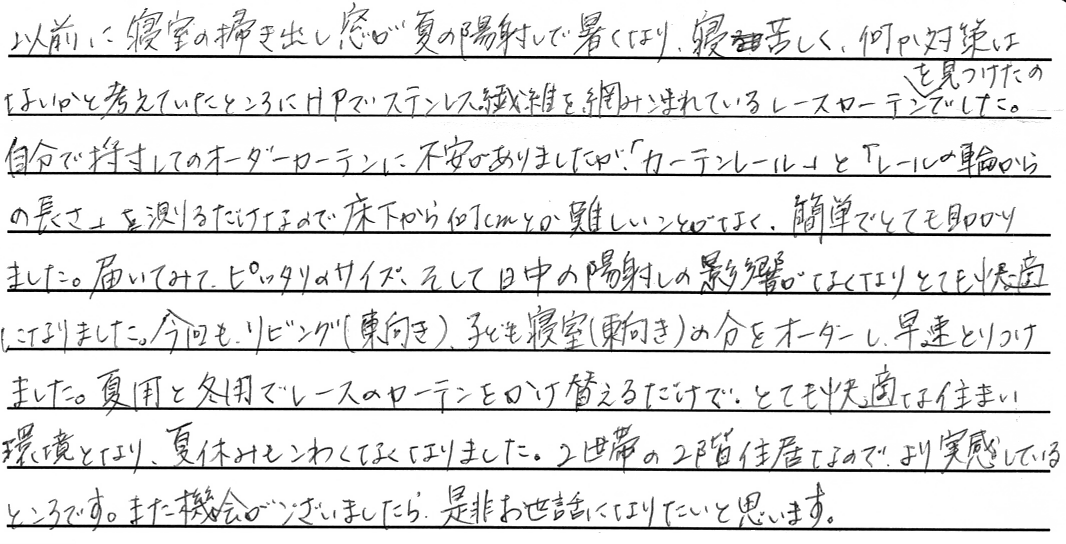 以前に寝室の掃き出し窓が夏の陽射しで暑くなり、寝苦しく、何か対策は
ないかと考えていたところにHPでステンレス繊維を網み込まれているレースカーテンを見つけたのでした。
自分で採寸してのオーダーカーテンに不安がありましたが、「カーテンレール」と「レールの輪から
の長さ」を測るだけなので床下から何cmとか難しいことがなく、簡単でとても助かり
ました。届いてみて、ピッタリのサイズ、そして日中の陽射しの影響がなくなりとても快適
になりました。今回も、リビング(東向き)、子ども寝室(東向き)の分をオーダーし、早速とりつけ
ました。夏用と冬用でレースのカーテンをかけ替えるだけで、とても快適な住まい
環境となり、夏休みもこわくなくなりました。2世帯の2階住居なので、より実感している
ところです。また機会がございましたら、是非お世話になりたいと思います。